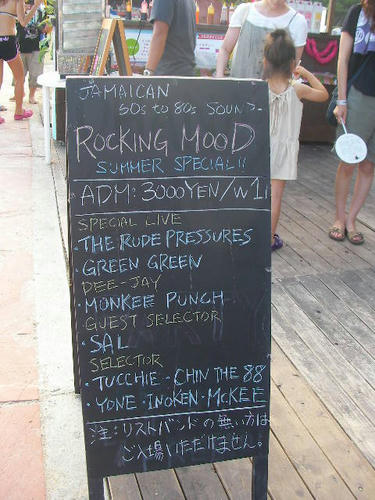 JAMAICAN
60s to 80s SOUNDS
ROCKING MOOD
SUMMER SPECIAL!!
ADM: 3000YEN/w1d
SPECIAL LIVE
・THE RUDE PRESSURES
・GREEN GREEN
DEE-JAY
・MONKEE PUNCH
GUEST SELECTOR
・SAL
SELECTOR
・TUCCHIE・CHIN THE 88
・YONE・INOKEN・McKEE
注:リストバンドの無い方は
ご入場いただけません。